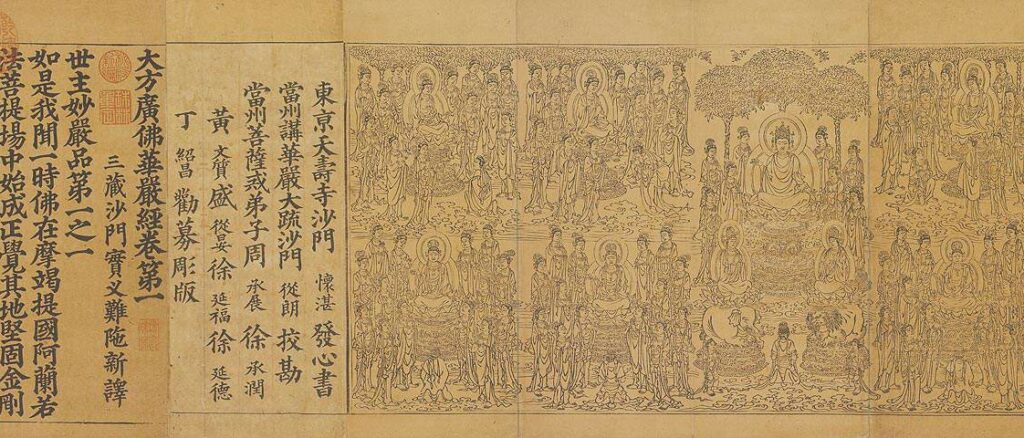 東京天壽寺沙門 懷湛 發心書
當州講華嚴大疏沙門 從朗 挍勘
當州菩薩戒弟子周 承展 徐 承潤
黃 文質 盛 從晏 徐 延福 徐 延德
丁 紹昌 勸募彫版
大方廣佛華嚴經卷第一
三藏沙門實叉難陁新譯
世主妙嚴品第一之一
如是我聞一時佛在摩竭提國阿蘭若
法菩提場中始成正覺其地堅固金剛